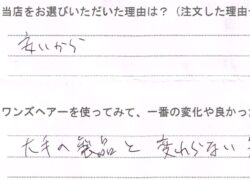 当店をお選びいただいた理由は？（注文した理由
安いから
ワンズヘアーを使ってみて、一番の変化や良かっ
大手の製品と変わらない